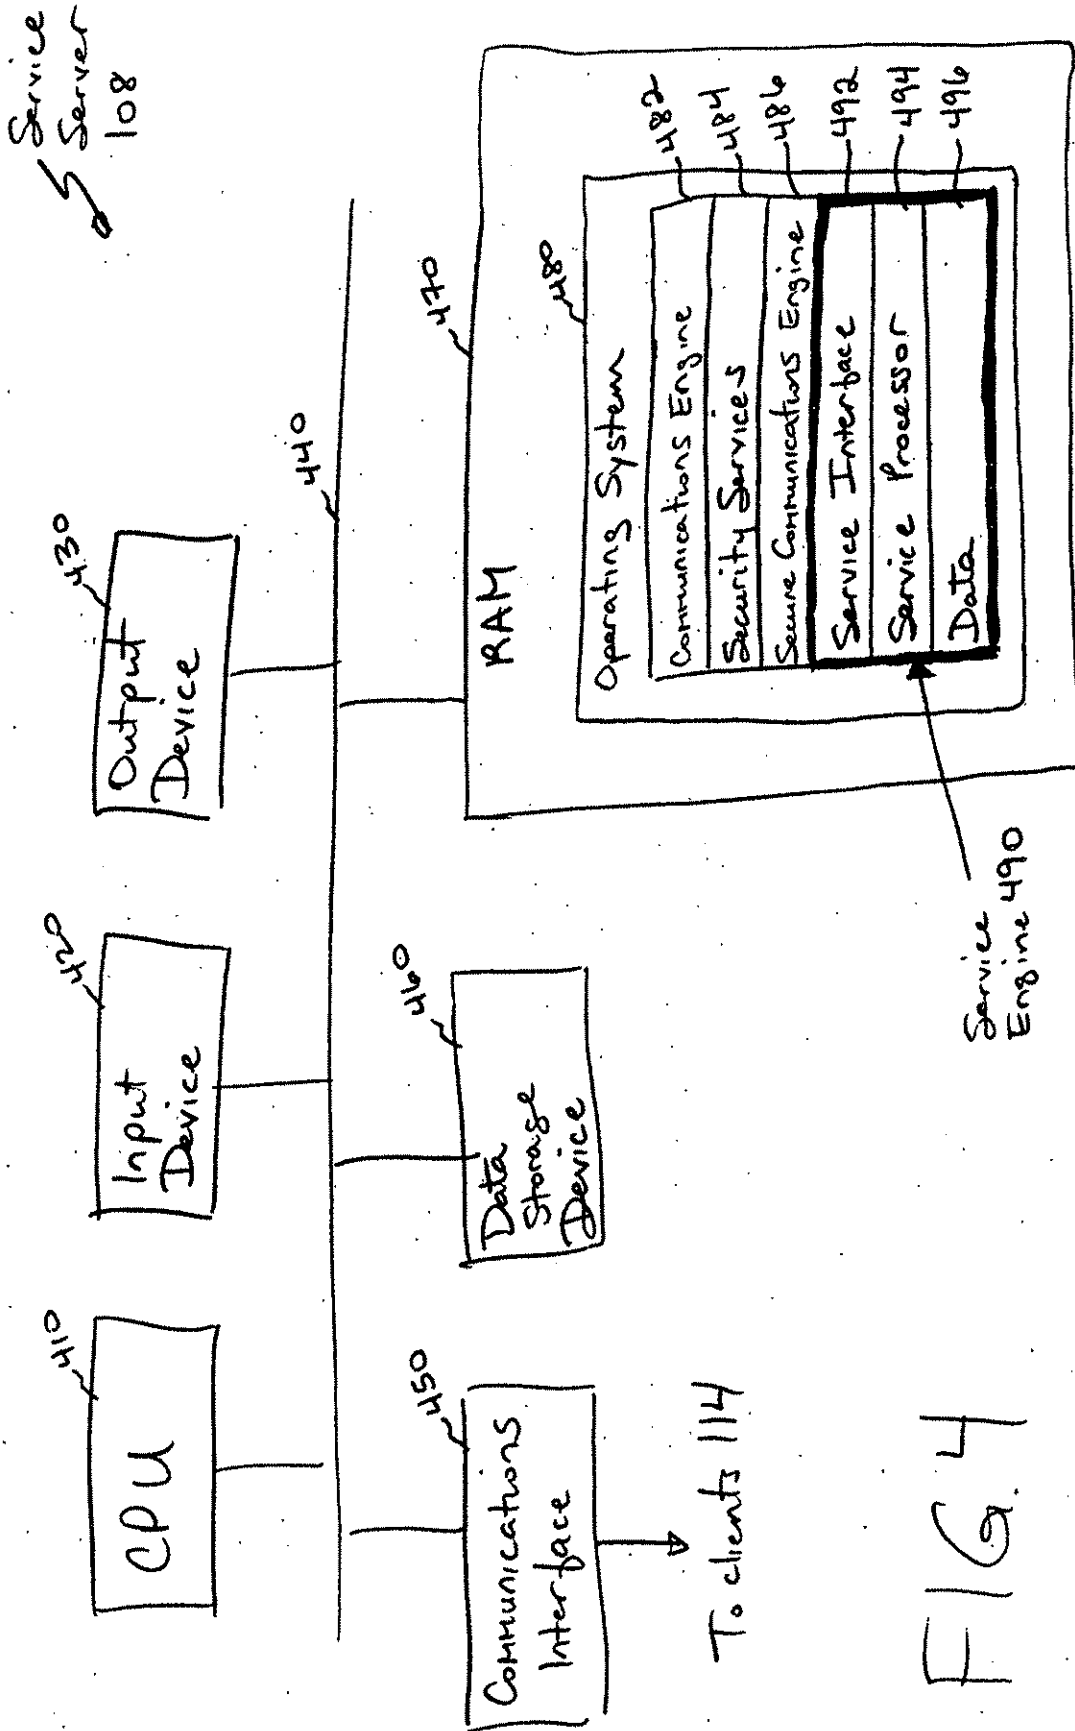 Service
Server
108
410
CPU
420
Input
Device
430
Output
Device
440
450
Communications
Interface
To clients 114
460
Data
Storage
Device
470
RAM
480
Operating System
Communications Engine
482
Security Services
484
Secure Communications Engine
486
Service Interface
492
Service Processor
494
Data
496
Service
Engine 490
FIG. 4